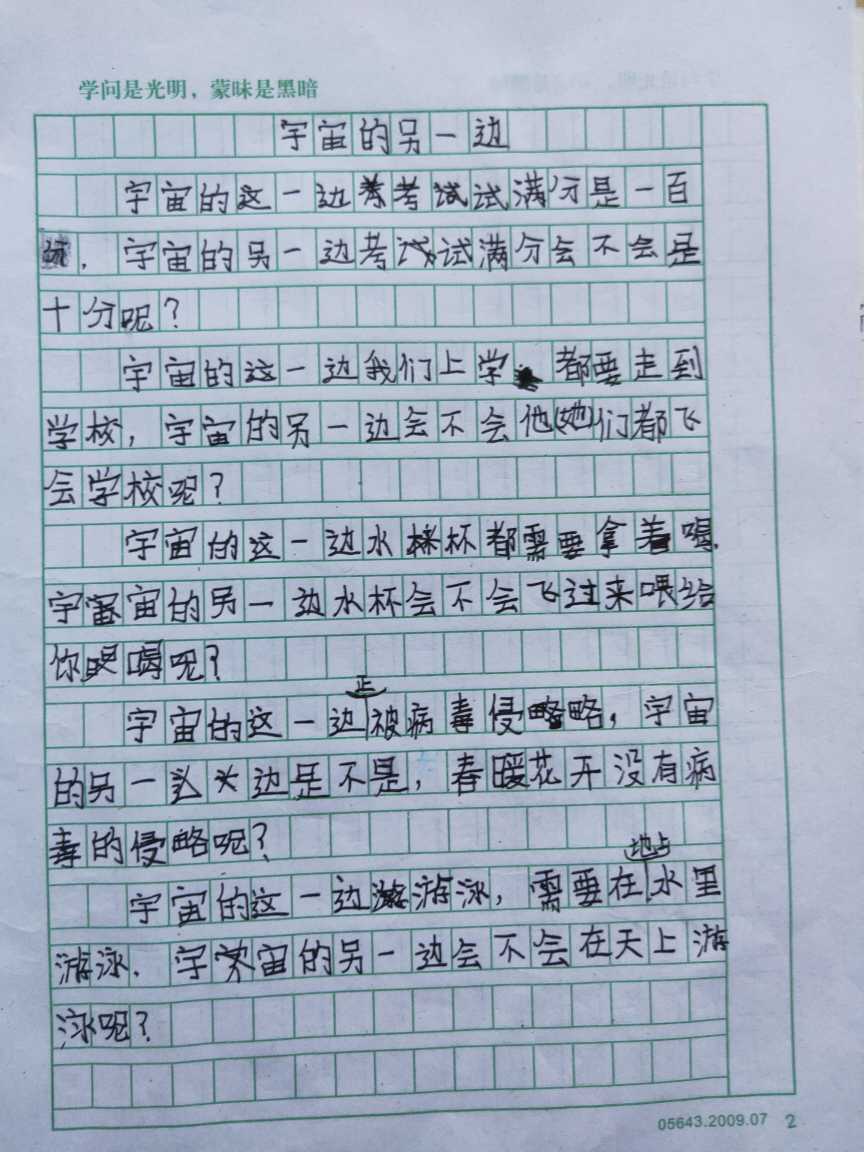 学问是光明，蒙昧是黑暗
宇宙的另一边
宇宙的这一边考试满分是一百
，宇宙的另一边考试满分会不会是
十分呢？
宇宙的这一边我们上学都要走到
学校，宇宙的另一边会不会他(她)们都飞
会学校呢？
宇宙的这一边水杯都需要拿着喝，
宇宙的另一边水杯会不会飞过来喂给
你喝呢？
正
宇宙的这一边被病毒侵略，宇宙
的另一边是不是，春暖花开没有病
毒的侵略呢？
地占
宇宙的这一边游泳，需要在水里
游泳．宇宙的另一边会不会在天上游
泳呢？
05643.2009.07 2